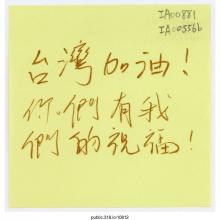 IA00881
IA00556b
台灣加油！
你們有我
們的祝福！
public.318.io/10813